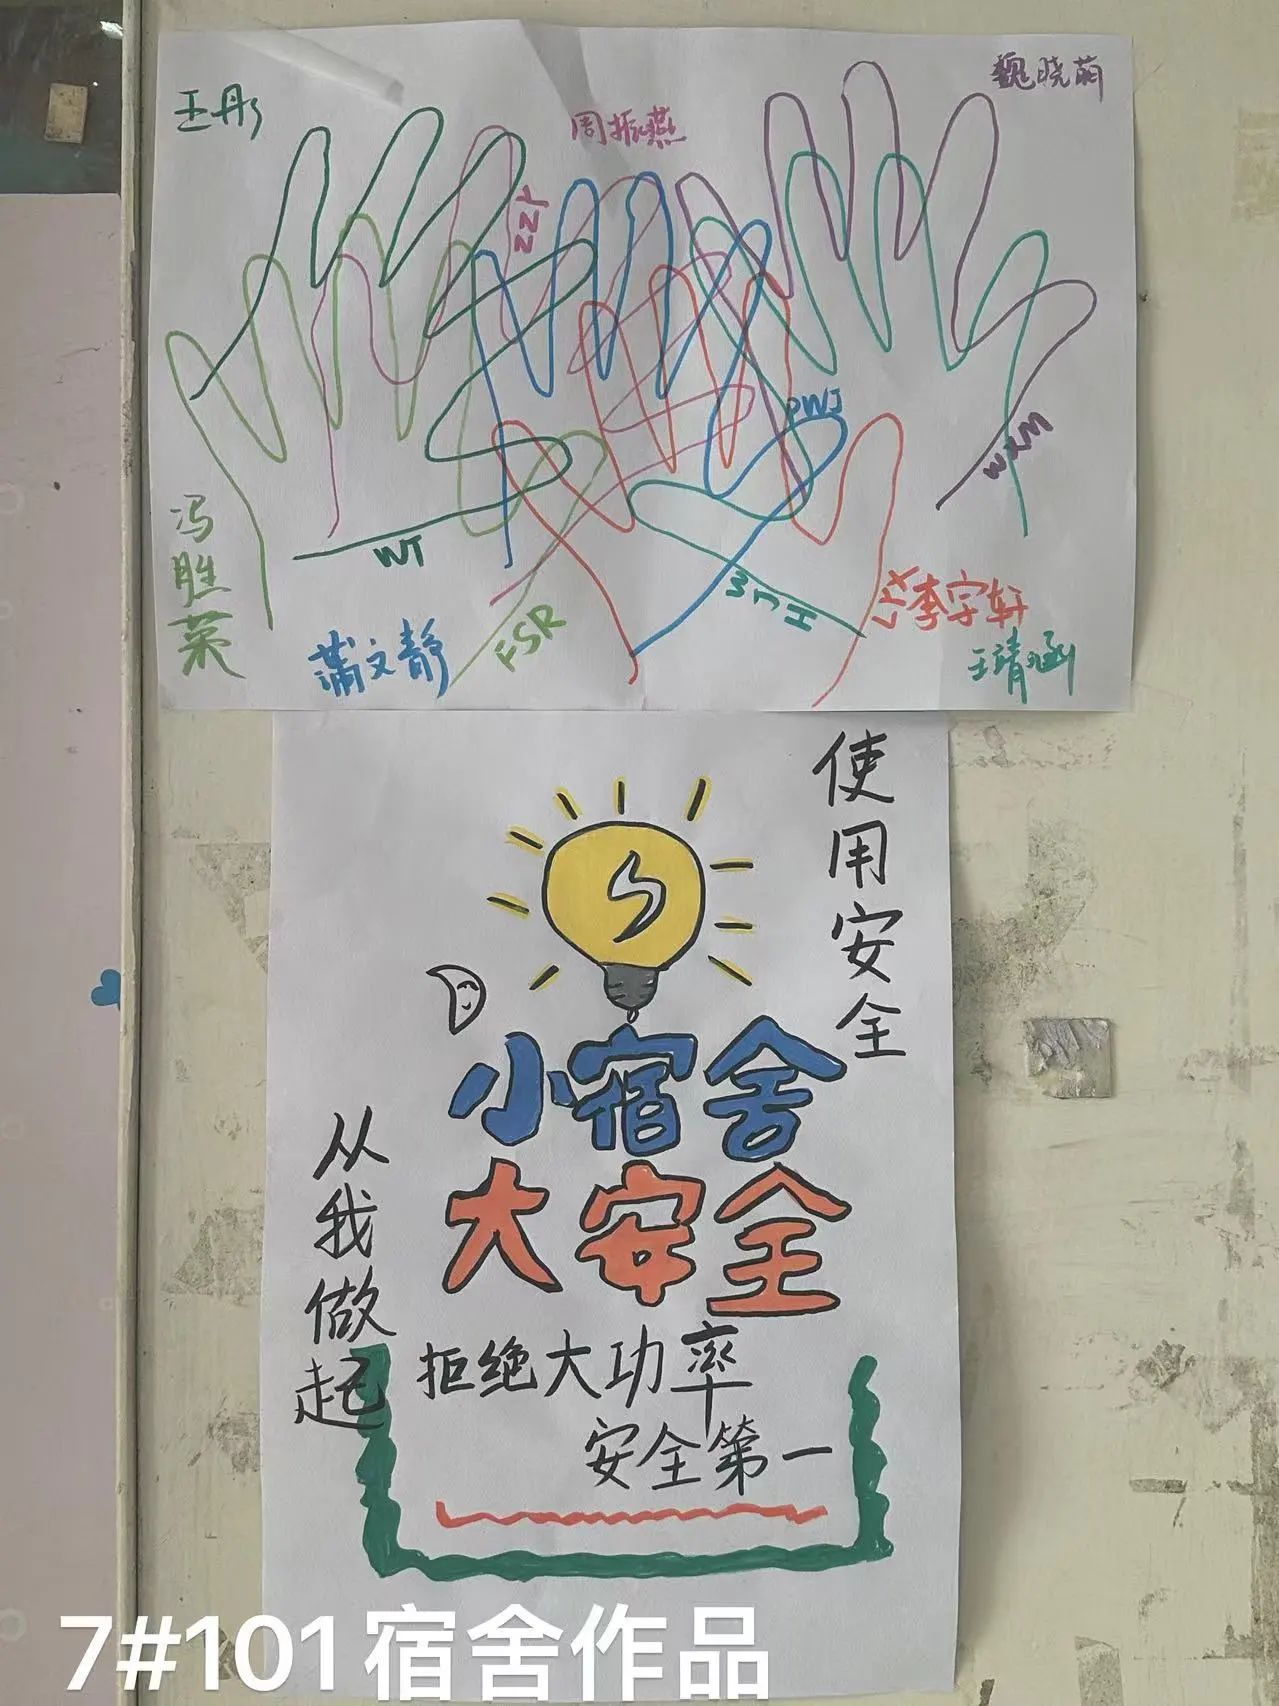 王彤
周振燕
魏晓萌
ZZY
PWJ
WXM
WT
冯胜荣
FSR
蒲文静
WJH
LYX
李宇轩
王靖涵
使用安全
小宿舍
大安全
从我做起
拒绝大功率
安全第一
7#101宿舍作品